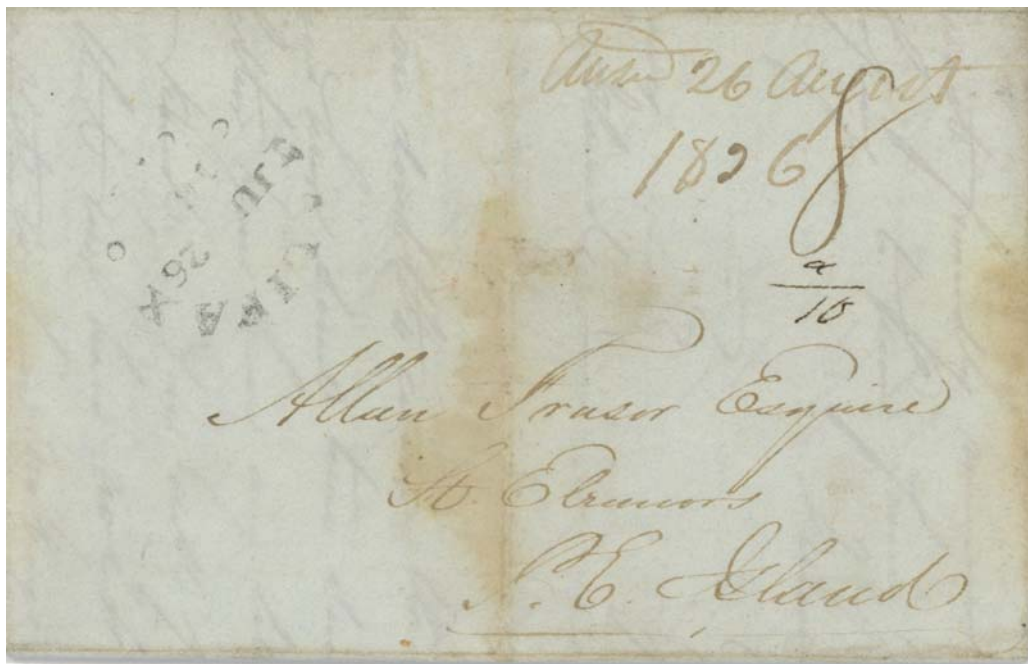 26 August
1826
8
a
10
JU
26
IFAX
Allan Fraser Esquire
St. Eleanors
P. E. Island